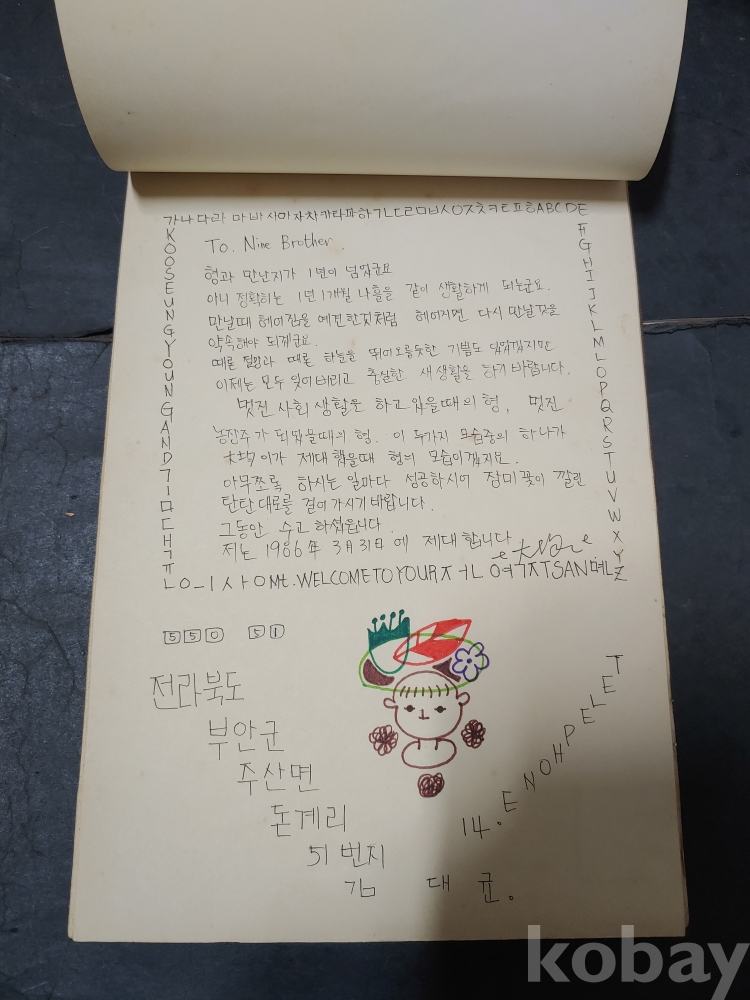 가나다라 마바 사아자차카타파하ㄱㄴㄷㄹㅁㅂㅅㅇㅈㅊㅋㅌㅍㅎABCDE
KOOSEUNGYOUNGAND
FGHIJKLMLOPQRSTUVWXYZ
To. Nine Brother.
형과 만난지가 1년이 넘었군요
아니 정확히는 1년 1개월 나흘을 같이 생활하게 되는군요.
만날때 헤어짐을 예견한것처럼 헤어지면 다시 만날것을
약속해야 되겠군요.
때론 절망과 때론 하늘을 뛰어오를듯한 기쁨도 있었겠지만
이제는 모두 잊어버리고 충실한 새생활을 하기 바랍니다.
멋진 사회생활을 하고 있을때의 형, 멋진
농장주가 되었을때의 형. 이 두가지 모습중의 하나가
이가 제대했을때 형의 모습이겠지요.
아무쪼록 하시는 일마다 성공하시어 장미꽃이 깔린
탄탄대로를 걸어가시기 바랍니다.
그동안 수고하셨읍니다.
저는 1986年 3月 31日에 제대합니다
WELCOME TO YOUR
550 51
전라북도
부안군
주산면
돈계리
51번지
김 대 균.
14. ENOHPELET
kobay